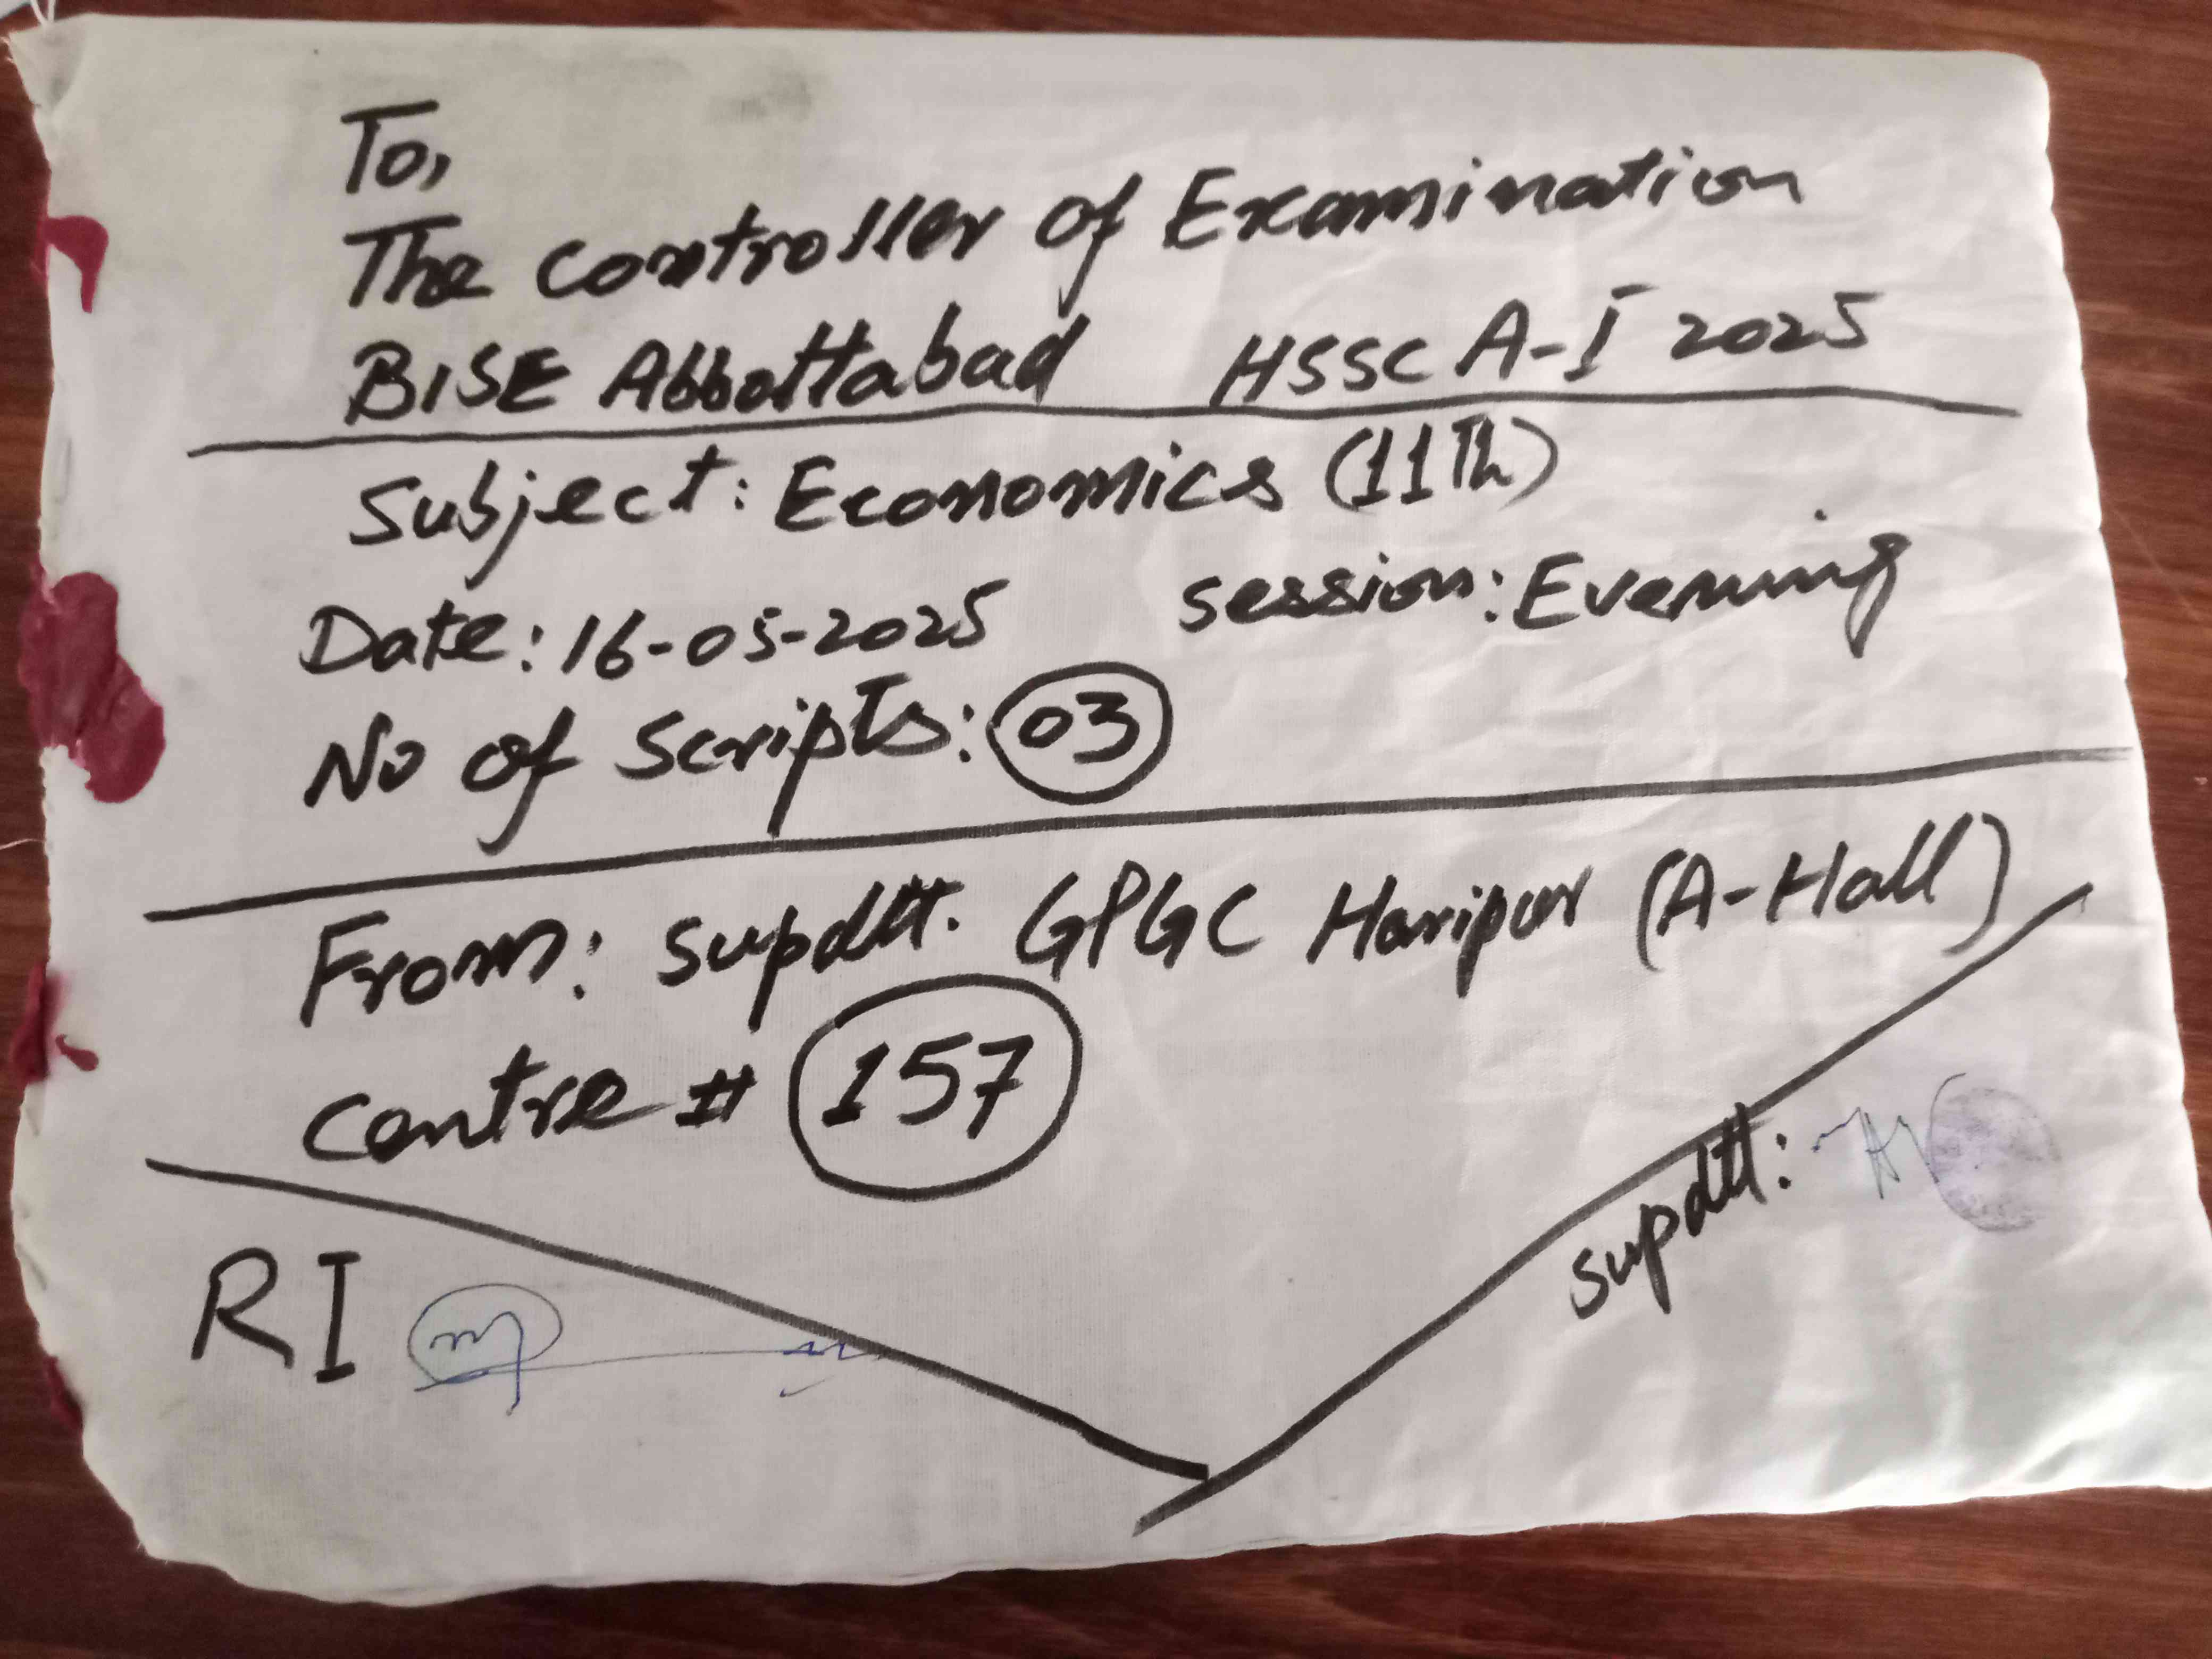 To,
The Controller of Examination
BISE Abbottabad HSSC A-I 2025
Subject: Economics (11Th)
Date: 16-05-2025 Session: Evening
No of Scripts: 03
From: Supdtt. GPGC Haripur (A-Hall)
Centre # 157
Supdtt:
RI